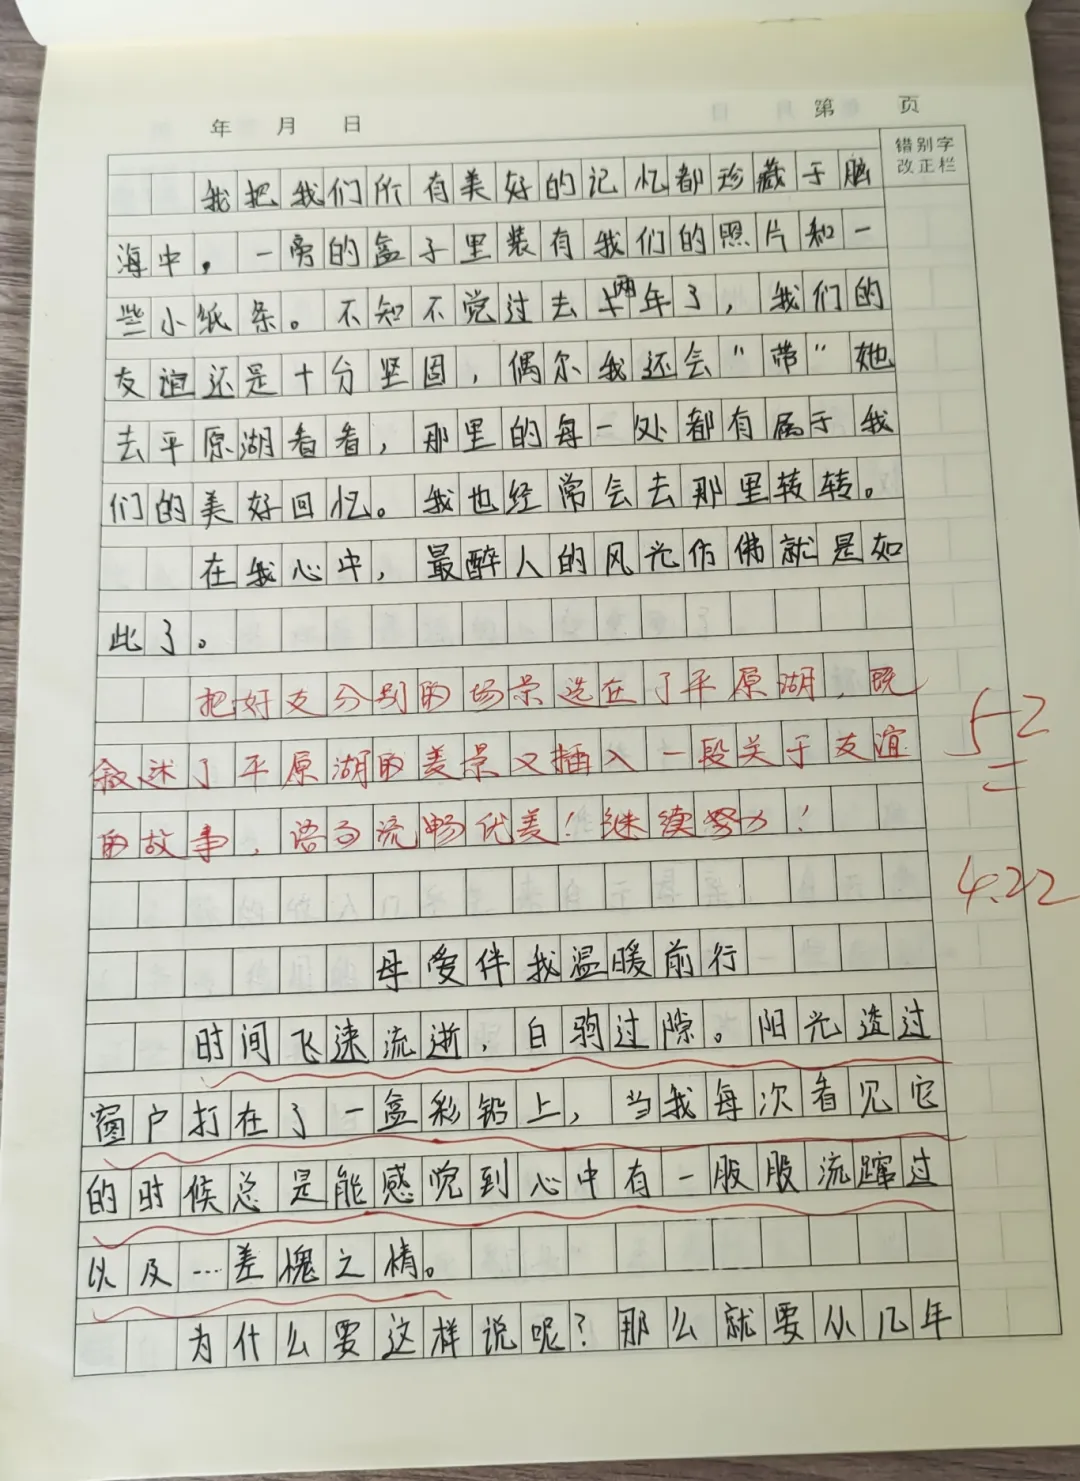 年 月 日
第 页
错别字
改正栏
我把我们所有美好的记忆都珍藏于脑
海中。一旁的盒子里装有我们的照片和一
些小纸条。不知不觉过去两年了，我们的
友谊还是十分坚固，偶尔我还会"带"她
去平原湖看看，那里的每一处都有属于我
们的美好回忆。我也经常会去那里转转。
在我心中，最醉人的风光仿佛就是如
此了。
把好友分别的场景选在了平原湖，既
叙述了平原湖的美景又插入一段关于友谊
的故事，语句流畅优美！继续努力！
52
4.22
母爱伴我温暖前行
时间飞速流逝，白驹过隙。阳光透过
窗户打在了一盒彩铅上，当我每次看见它
的时候总是能感觉到心中有一股股流蹿过
以及…差愧之情。
为什么要这样说呢？那么就要从几年